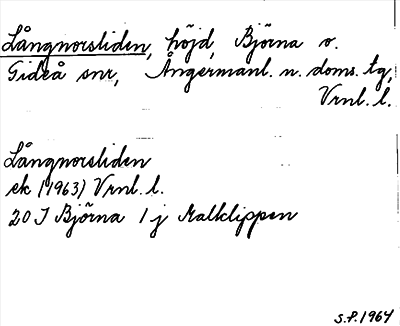 Långnorsliden, höjd, Björna o.
Gideå snr, Ångermanl. n. doms. tg,
Vrnl. l.
Långnorsliden
ek (1963) Vrnl. l.
20 I Björna 1 j Kalklippen
S.P. 1964